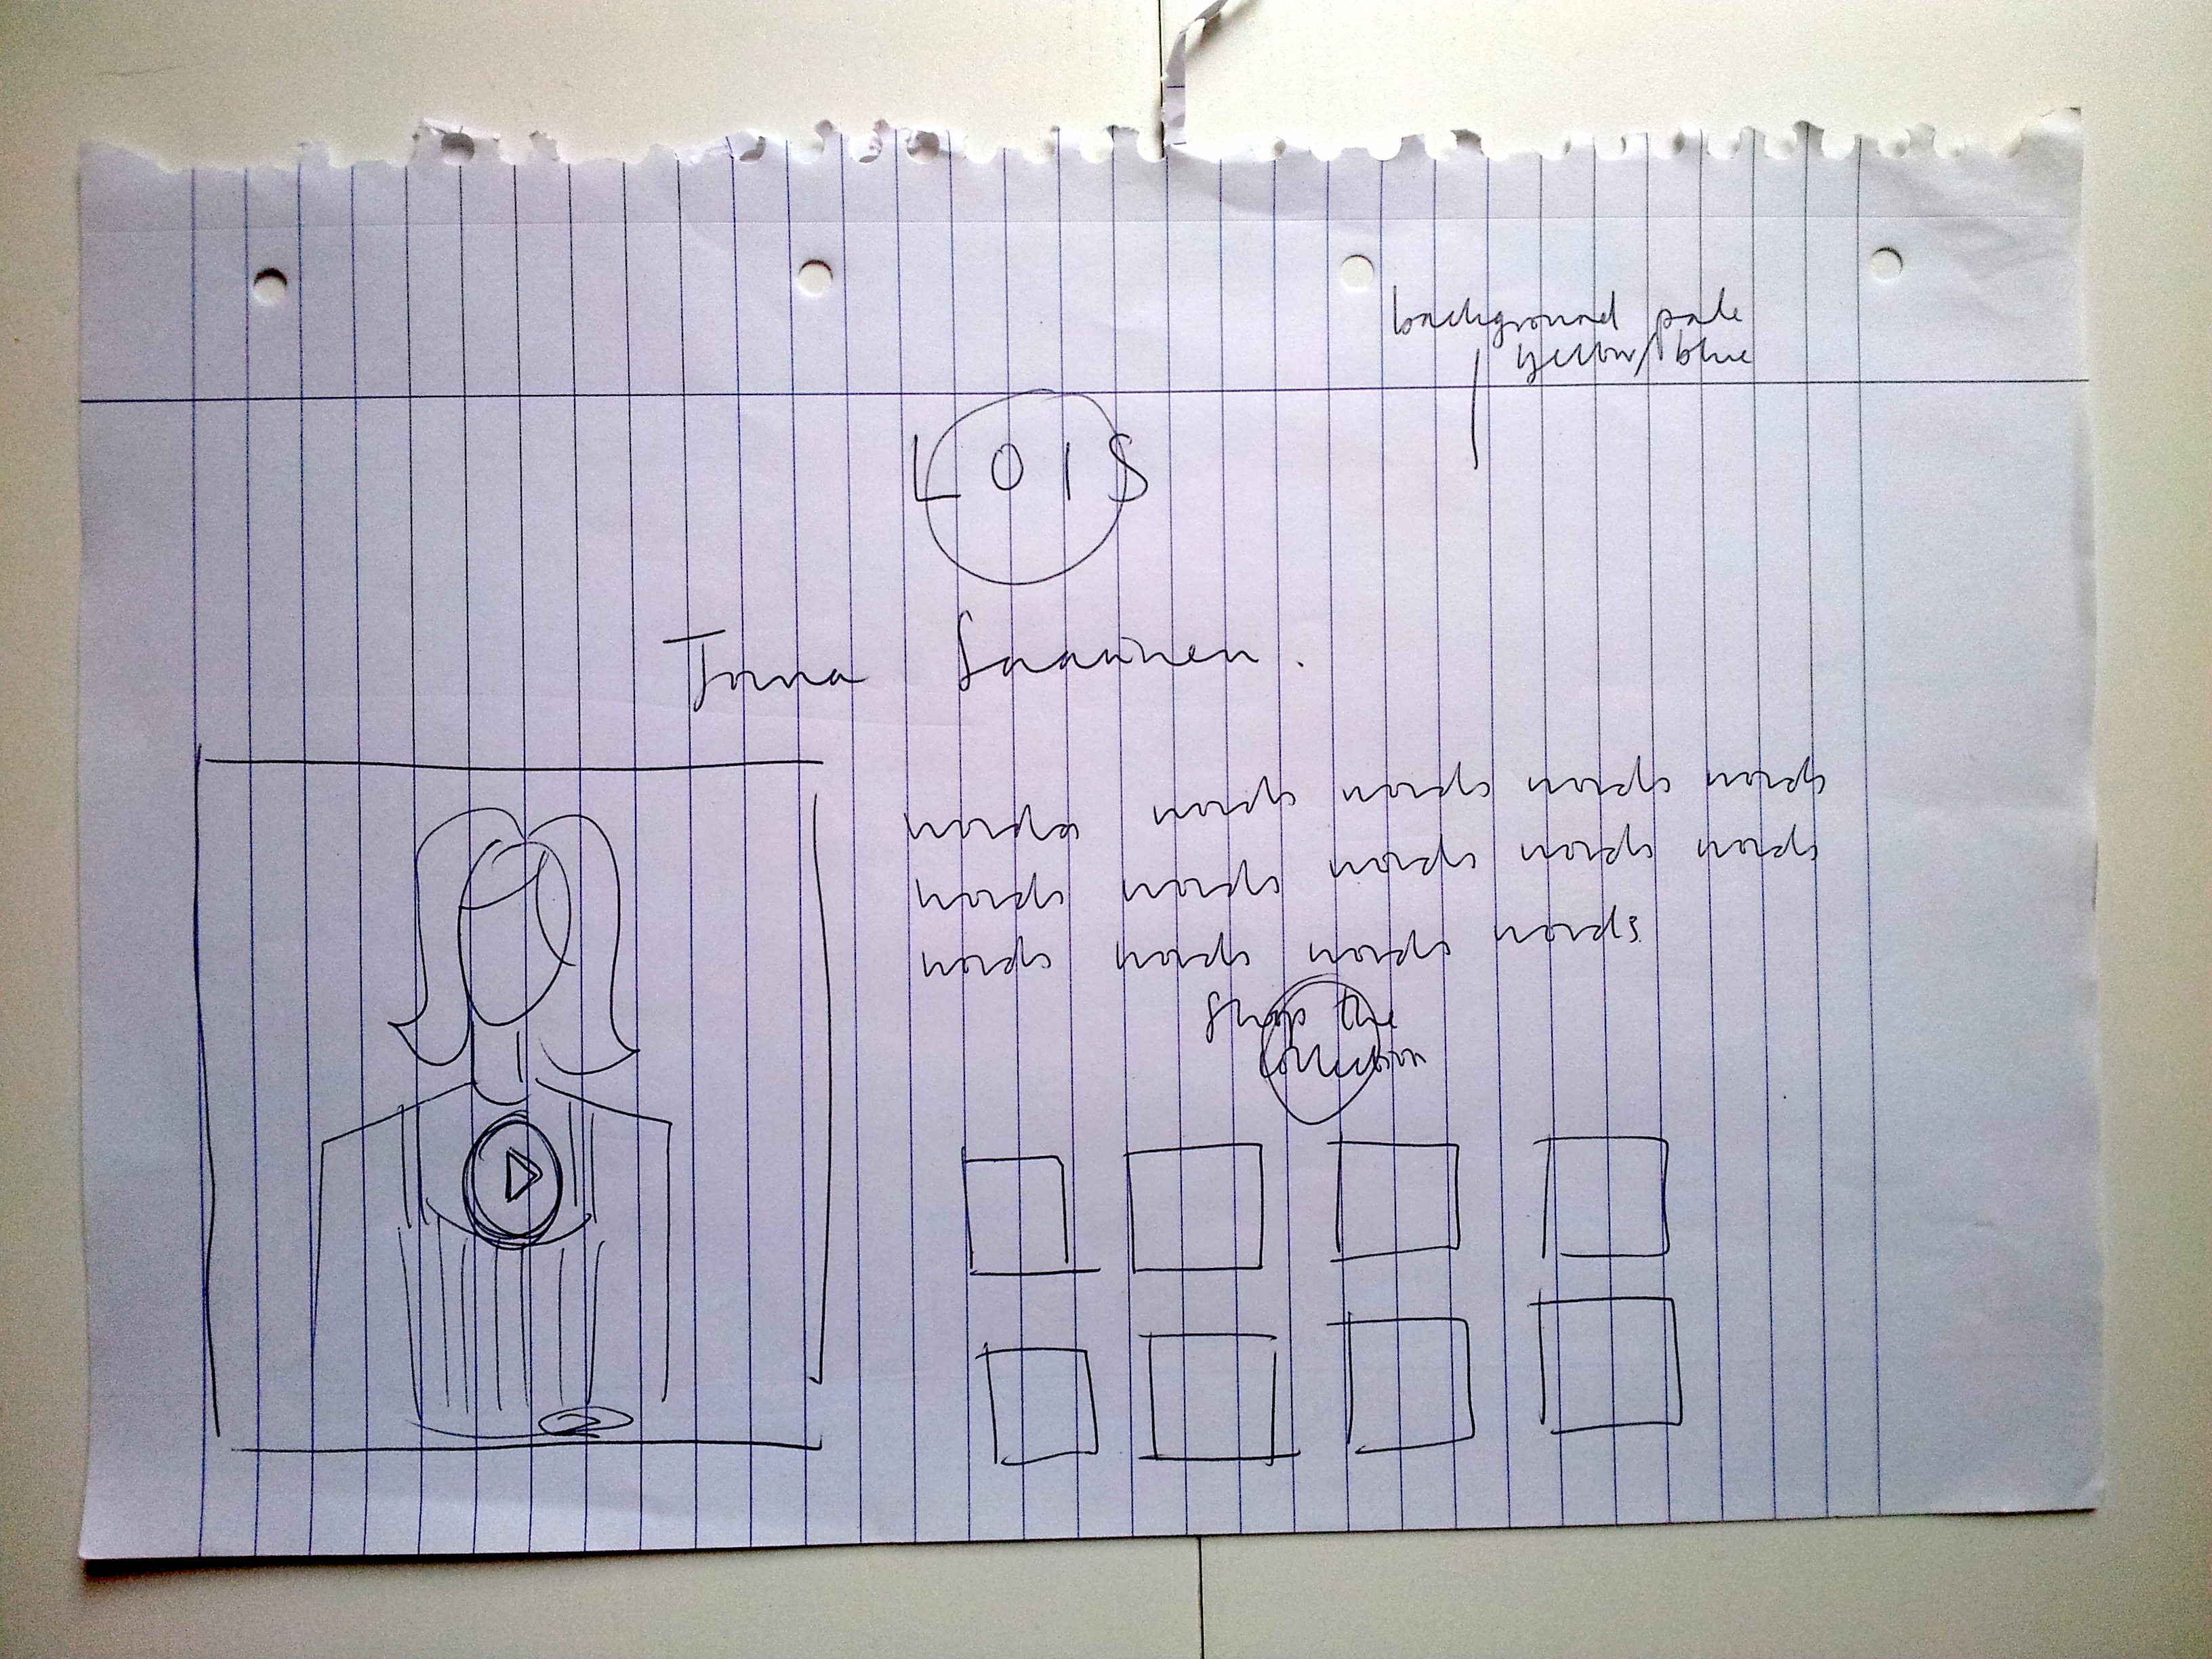 background pale
yellow/blue
LOIS
Saarinen.
words words words words words
words words words words words
words words words words
Shop the
collection